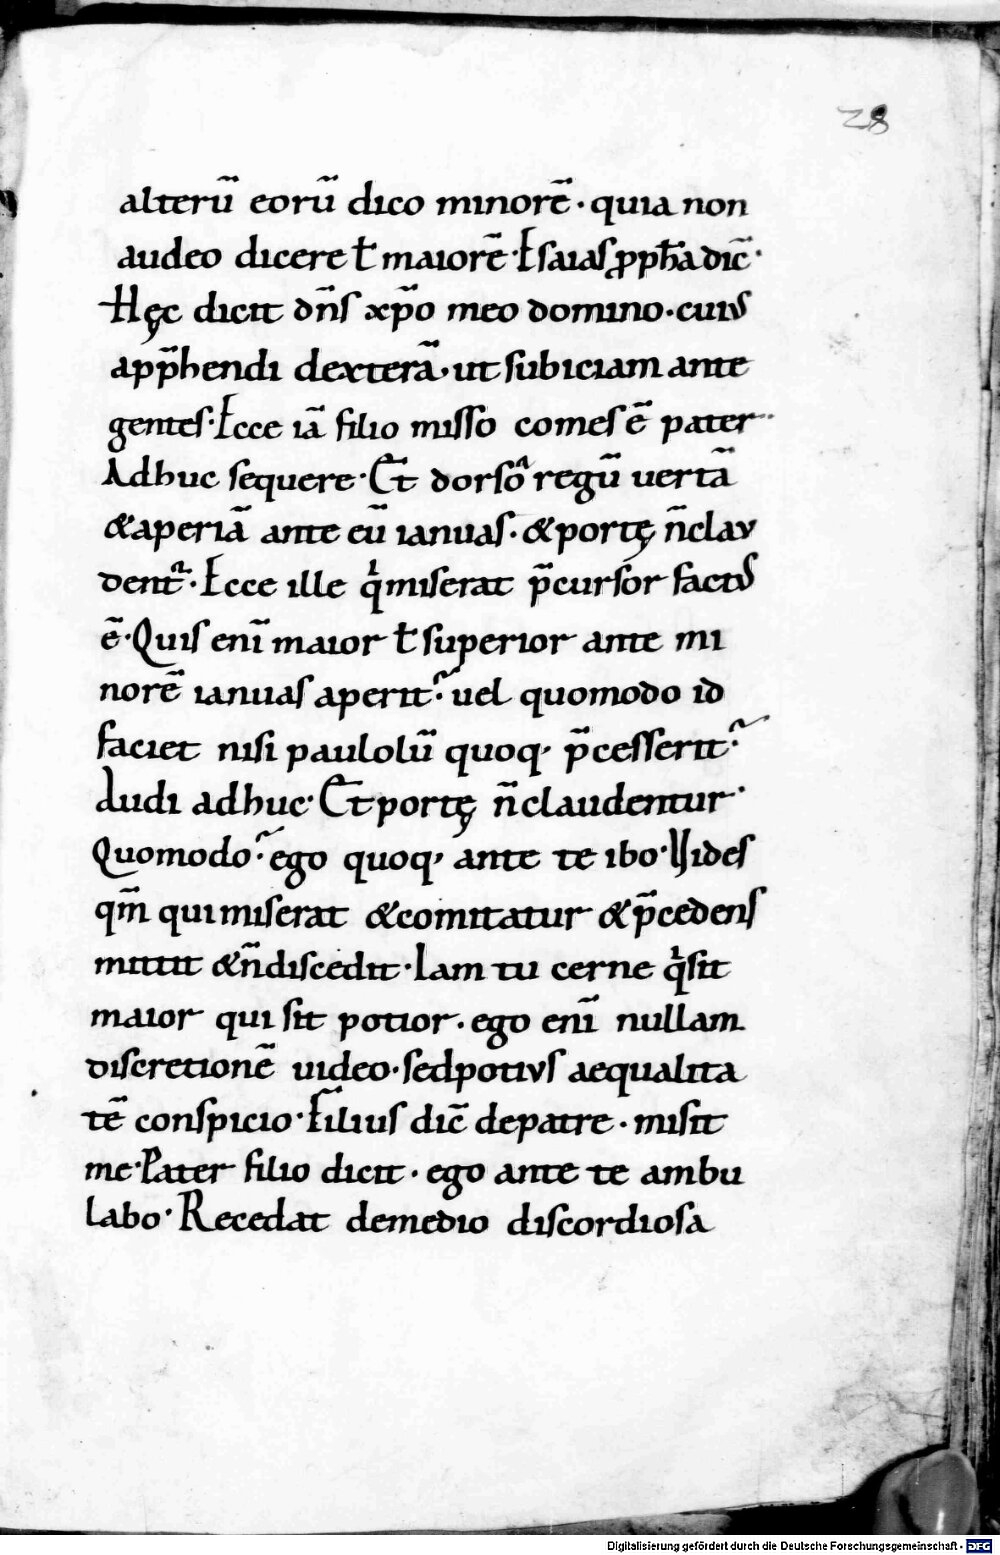 28
alterū eorū dico minorē· quia non
audeo dicere ł maiorē· Esaias ꝓpħa dic̄·
Hęc dicit dn̄s xp̄o meo domino· cuiꝰ
app̄hendi dexterā· ut subiciam ante
gentes· Ecce iā filio misso comes ē pater·
Adhuc sequere· Et̄ dorsō regū uertā
&aperiā ante eū ianuas· &portę n̄clau
dent᷑· Ecce ille qͥmiserat p̄cursor factꝰ
ē· Quis enī maior ł superior ante mi
norē ianuas aperit? uel quomodo id
faciet nisi paulolū quoq, p̄cesserit?
Audi adhuc· Et̄ portę n̄claudentur·
Quomodo? ego quoq, ante te ibo· Vides
qm̄ qui miserat &comitatur &p̄cedens
mittit &n̄discedit· Iam tu cerne qͥsit
maior qui sit potior· ego enī nullam
discretionē uideo· sedpotius aequalita
tē conspicio· Filius dic̄ depatre· misit
me· Pater filio dicit· ego ante te ambu
labo· Recedat demedio discordiosa
Digitalisierung gefördert durch die Deutsche Forschungsgemeinschaft - DFG